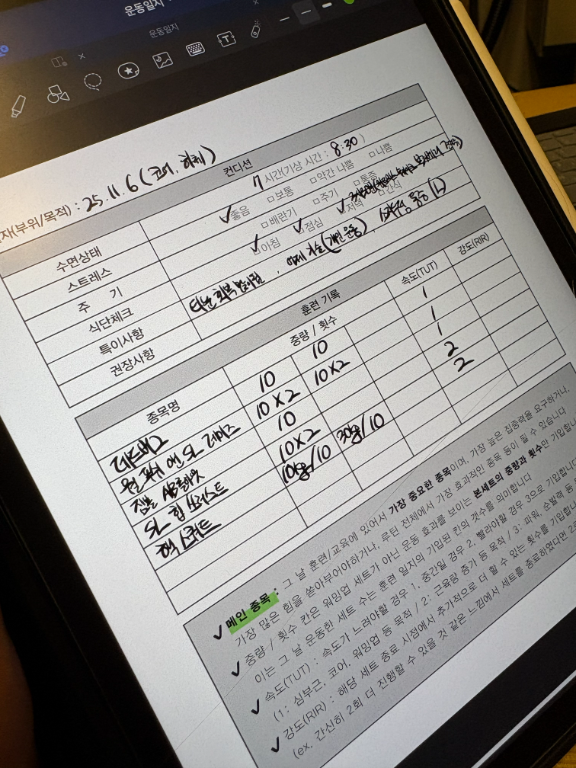 운동일지
운동일지
재(부위/목적) : 25.11.6 (코어, 하체)
컨디션
수면상태 7 시간(기상 시간 : 8:30 )
스트레스 ✓좋음 □보통 □약간 나쁨 □나쁨
주 기 □배란기 □주기 □통증
식단체크 ✓아침 ✓점심 ✓저녁 □간식
특이사항
권장사항
훈련 기록
종목명 중량 / 횟수 속도(TUT) 강도(RIR)
데드버그 10 10 1
월 푸쉬 앤 SL 레이즈 10×2 10×2 1
짐볼 10 2
SL 힙 쓰러스트 10×2 2
핵 스쿼트 /10 /10
✓ 메인 종목 : 그 날 훈련/교육에 있어서 가장 중요한 종목이며, 가장 높은 집중력을 요구하거나,
가장 많은 힘을 쏟아부어야하거나, 루틴 전체에서 가장 효과적인 종목 등이 될 수 있습니다
✓ 중량 / 횟수 칸은 워밍업 세트가 아닌 운동 효과를 보이는 본세트의 중량과 횟수만 기입합니
이는 그 날 운동한 세트 수는 훈련 일지의 기입된 칸의 갯수를 의미합니다
✓ 속도(TUT) : 속도가 느려야할 경우 1, 중간일 경우 2, 빨라야할 경우 3으로 기입합니
(1 : 심부근, 코어, 워밍업 등 목적 / 2 : 근육량 증가 등 목적 / 3 : 파워, 순발력 등
✓ 강도(RIR) : 해당 세트 종료 시점에서 추가적으로 더 할 수 있는 횟수를 기입합
(ex. 간신히 2회 더 진행할 수 있을 것 같은 느낌에서 세트를 종료하였다면 2